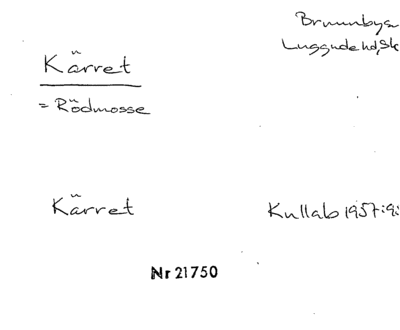 Brunnbys
Luggude hd, Sk
Kärret
= Rödmosse
Kärret
Kullab 1957:95
Nr 21750